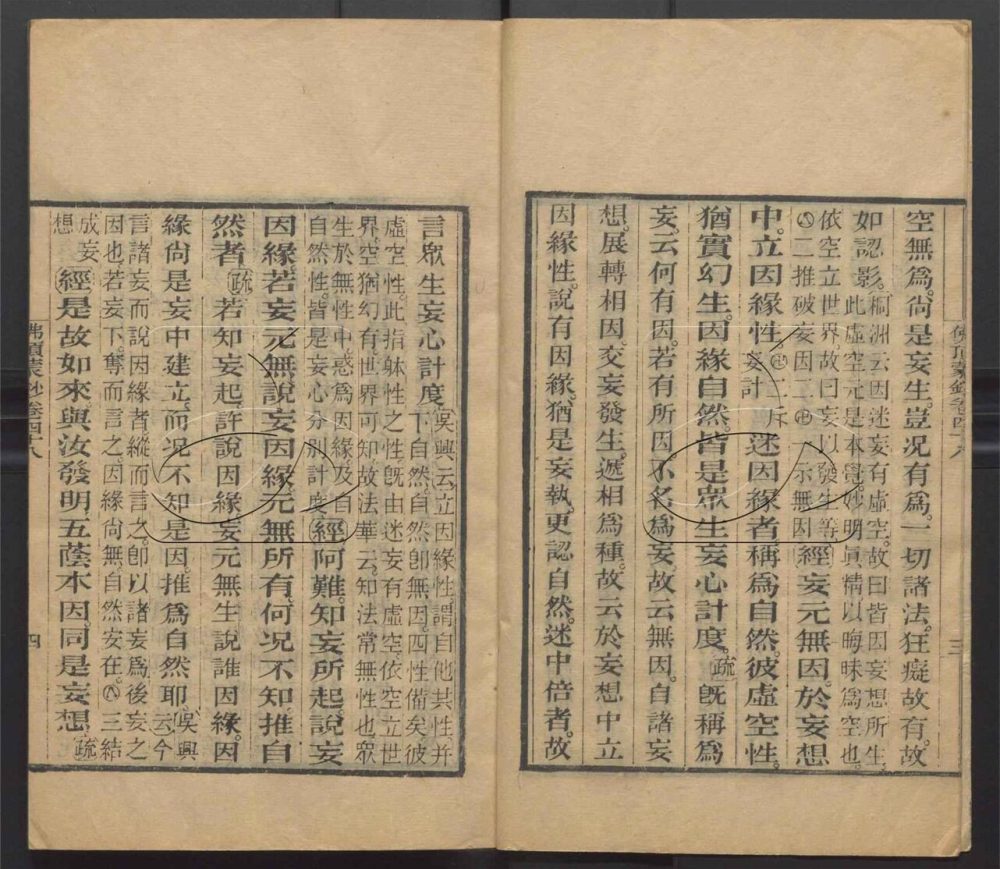 空無爲。尚是妄生。豈况有爲。一切諸法。狂癡故有。故
如認影。桐洲云因迷妄有虛空。故曰皆因妄想所生。
此虛空元是本覺妙明真精以晦昧爲空也。
依空立世界。故曰妄以發生等。
二推破妄因二 一示無因 經妄元無因。於妄想
中。立因緣性。二斥妄計 迷因緣者。稱爲自然。彼虛空性。
猶實幻生。因緣自然。皆是眾生妄心計度。疏既稱爲
妄。云何有因。若有所因。不名爲妄。故云無因。自諸妄
想。展轉相因。交妄發生。遞相爲種。故云於妄想中立
因緣性。說有因緣。猶是妄執。更認自然。迷中倍者。故
佛頂蒙鈔卷四十八
三
言眾生妄心計度。吳興云。立因緣性。謂自他共性。并
下自然。自然卽無因。四性備矣。彼
虛空性。此指躰性之性。旣由迷妄有虛空。依空立世
界。空猶幻有。世界可知。故法華云。知法常無性也。眾
生於無性中。惑爲因緣。及自
自然性。皆是妄心分別計度 經阿難。知妄所起。說妄
因緣。若妄元無。說妄因緣。元無所有。何况不知。推自
然者。疏若知妄起。許說因緣。妄元無生。說誰因緣。因
緣尚是妄中建立。而况不知是因。推爲自然耶。吳興
云。今
言諸妄而說因緣者。縱而言之。卽以諸妄爲後妄之
因也。若妄下。奪而言之。因緣尚無。自然安在。三結
成妄
想 經是故如來。與汝發明。五蔭本因。同是妄想。疏
佛頂蒙鈔卷四十八
四